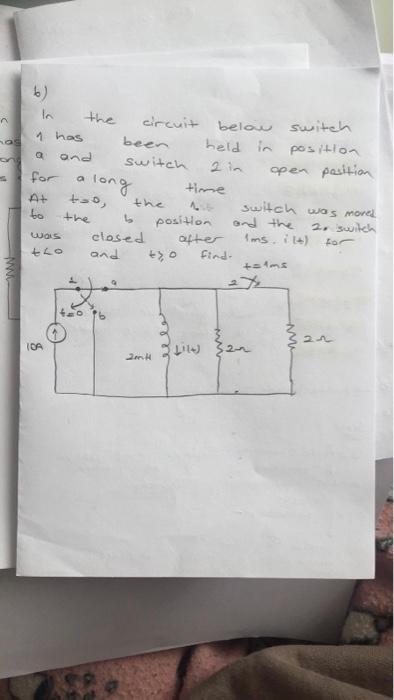 b)
In the circuit below switch
1 has been held in position
a and switch 2 in open position
for a long time
At t=0, the 1. switch was moved
to the b position and the 2. switch
was closed after 1ms. i(t) for
t<0 and t≥0 find.
t=1ms
1 a 2
t=0 b
10A 2mH ↓i(t) 2Ω 2Ω